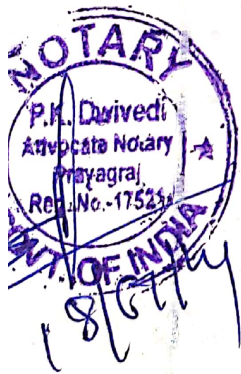 NOTARY
P.K. Dwivedi
Advocate Notary
Prayagraj
Reg. No.-17521
OF INDIA